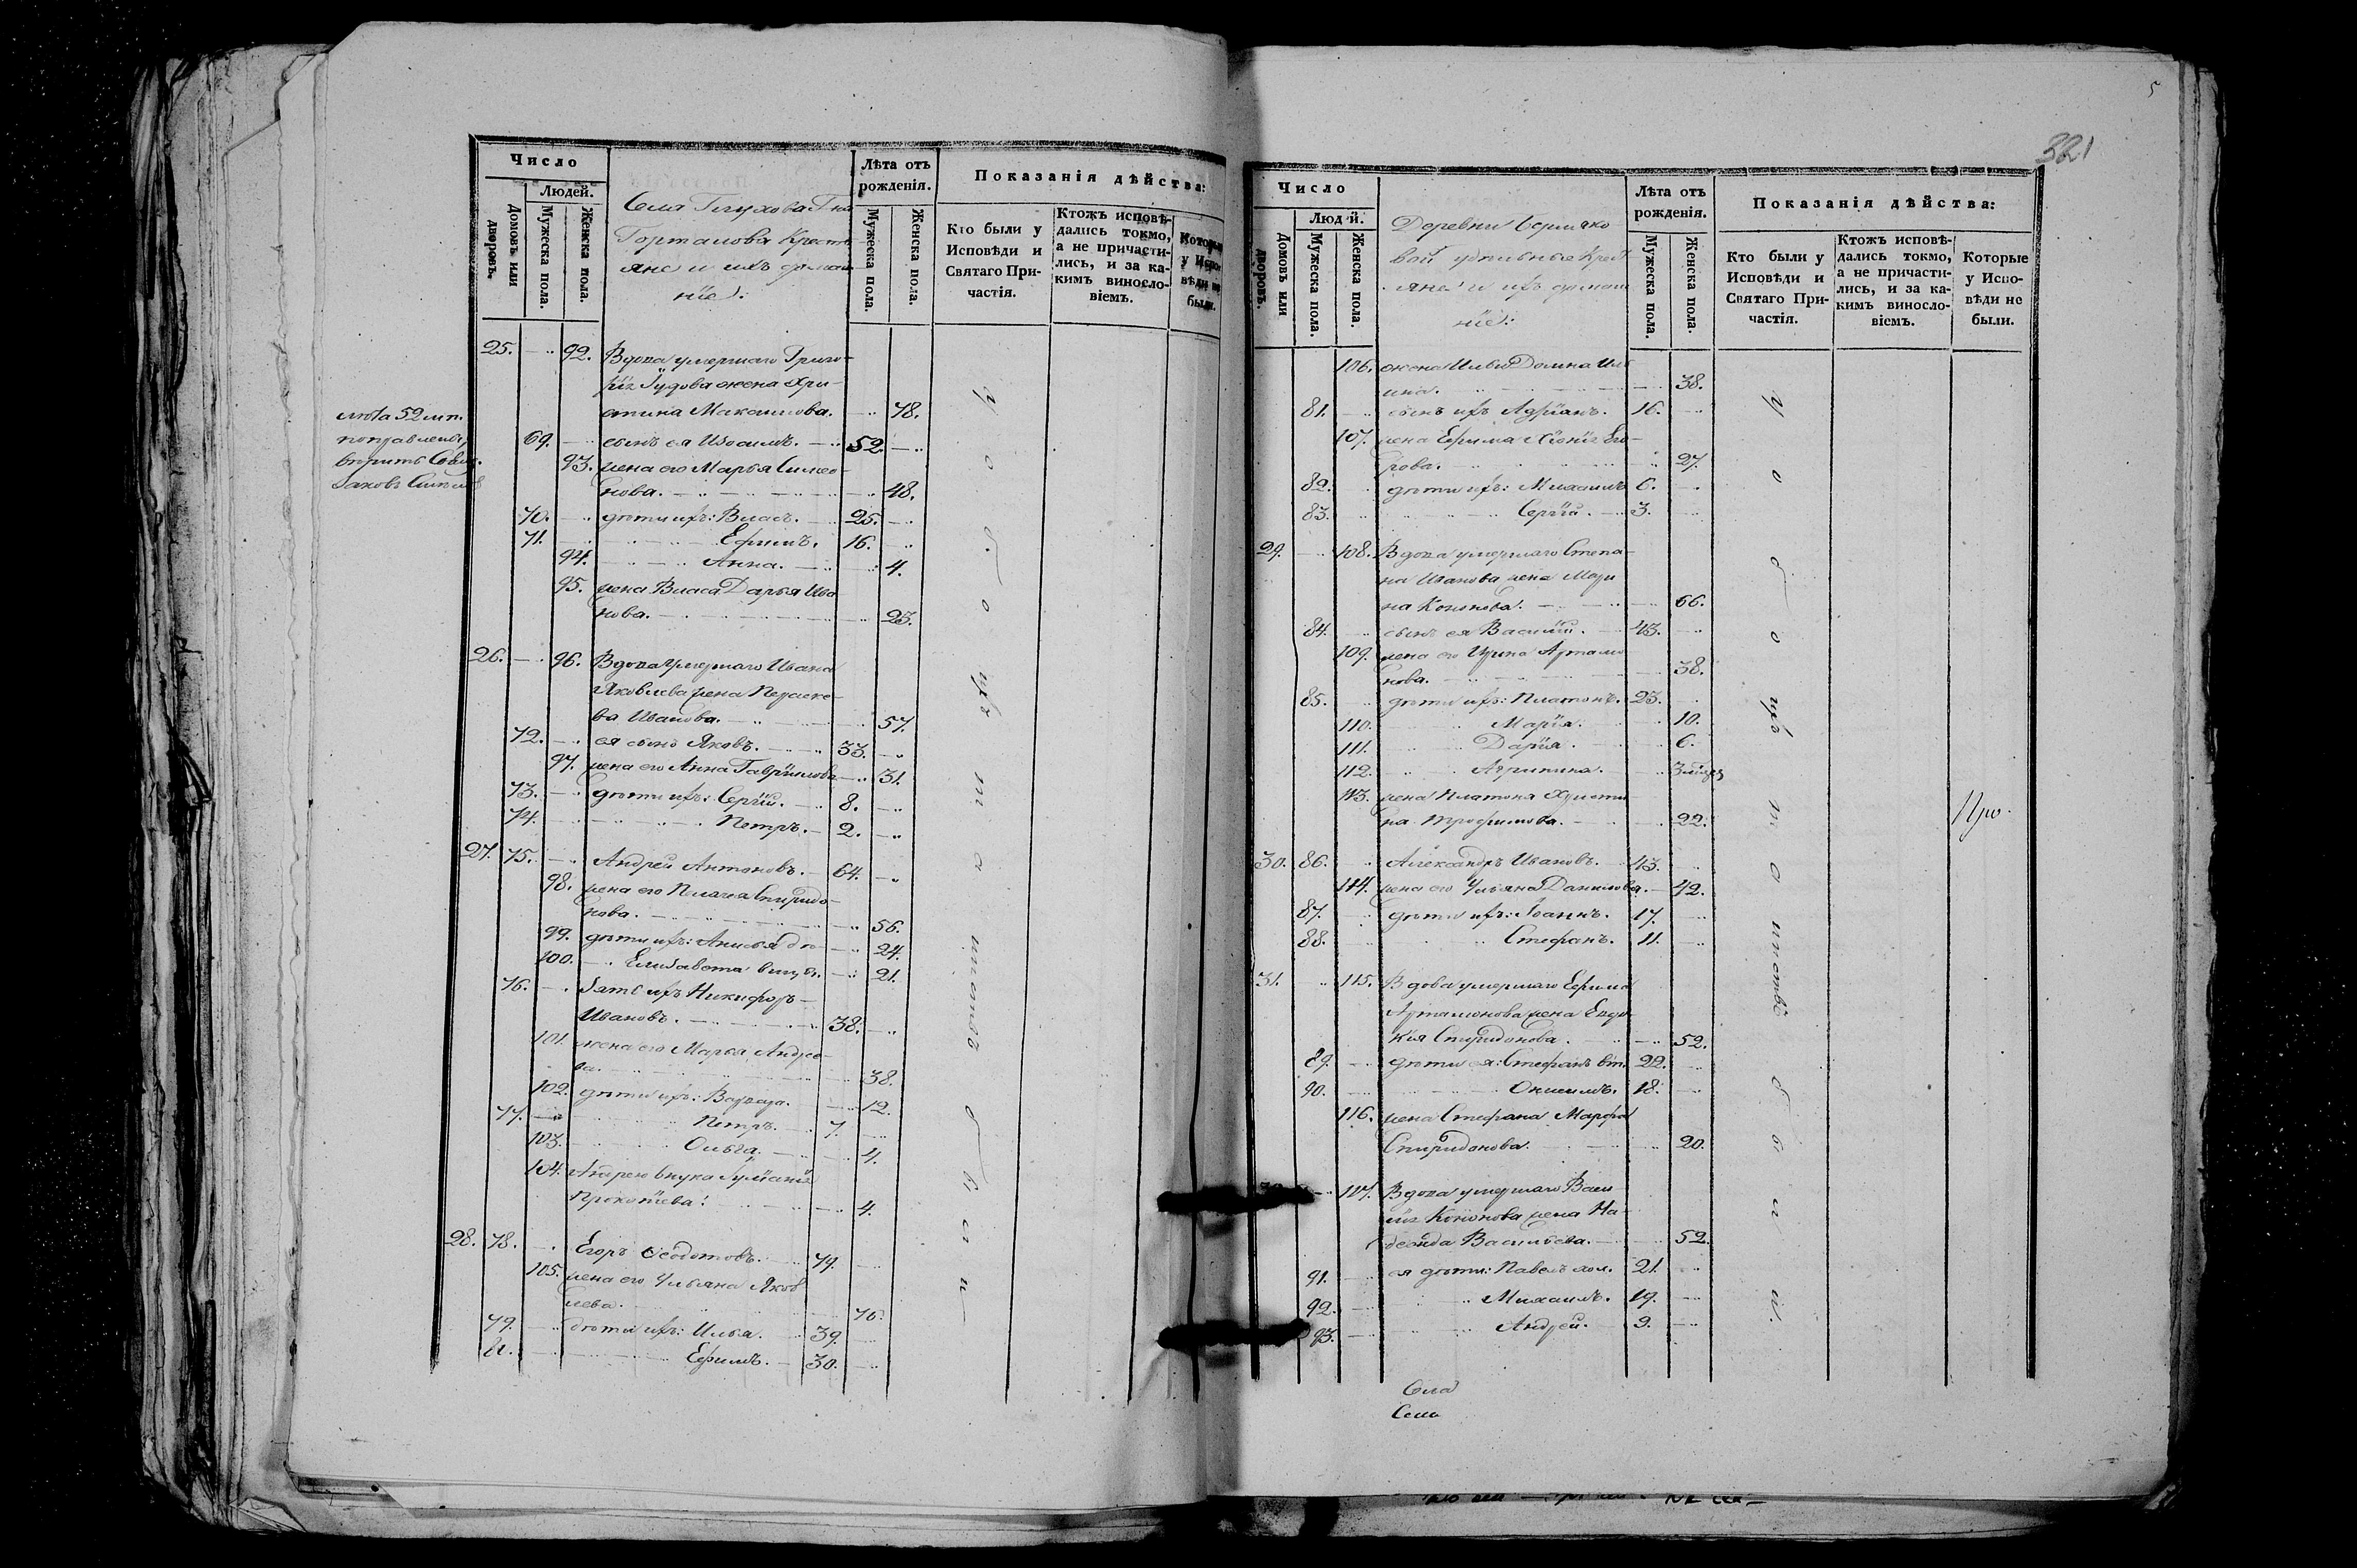 Число
Людей.
Домовъ или дворовъ.
Мужеска пола.
Женска пола.
Села Глухова Гна
Горталова Кресть-
яне и ихъ домаш-
ніе:
Лѣта отъ рожденія.
Мужеска пола.
Женска пола.
Показанія дѣйства:
Кто были у Исповѣди и Святаго Причастія.
Ктожъ исповѣдались токмо, а не причастились, и за какимъ винословіемъ.
Которые у Исповѣди не были.
25. 92. Вдова умершаго Григо-
рія Іудова жена Хри-
стина Максимова. 78.
лѣта 52
69. сынъ ея 52.
93. жена его Марья Симео-
нова. 48.
70. дѣти ихъ: Власъ. 25.
71. Ефимъ. 16.
94. Анна. 4.
95. жена Власа Дарья Ива
нова. 23.
26. 96. Вдова умершаго Ивана
Яковлева жена Параске-
ва Иванова. 57.
72. ея сынъ Яковъ. 33.
97. жена его Анна Гаврiилова 31.
73. дѣти ихъ: Сергій. 8.
74. Петръ. 2.
27. 75. Андрей Антоновъ. 64.
98. жена его Пелагея Спиридо-
нова. 56.
99. дѣти ихъ: Анисья 24.
100. Елисавета 21.
76. Зять ихъ Никифоръ
Ивановъ. 38.
101. жена его Марья Андрее-
ва. 38.
102. дѣти ихъ: Варвара. 12.
77. Петръ. 7.
103. Ольга. 4.
104. Андрею внука Іуліанія
Прокопіева. 4.
28. 78. Егоръ Ѳеодотовъ. 79.
105. жена его Ульяна Яков
лева. 76.
79. дѣти ихъ: Илья. 39.
Ефимъ. 30.
у
о
б
о
ихъ
т
о
инствѣ
б
ы
л
и
5
321
Число
Людй.
Домовъ или дворовъ.
Мужеска пола.
Женска пола.
Деревни Сермяко
вой удѣльные Крест
яне и ихъ домаш
ніе:
Лѣта отъ рожденія.
Мужеска пола.
Женска пола.
Показанія дѣйства:
Кто были у Исповѣди и Святаго Причастія.
Ктожъ исповѣдались токмо, а не причастились, и за какимъ винословіемъ.
Которые у Исповѣди не были.
106. жена Ильи Домна Иль
ина. 38.
81. сынъ ихъ Адріанъ. 16.
107. жена Ефима Хіонія Его-
рова. 27.
82. дѣти ихъ: Михаилъ 6.
83. Сергій. 3.
29. 108. Вдова умершаго Степа-
на Иванова жена Мари
на Кононова. 66.
84. сынъ ея Василій. 43.
109. жена его Ирина Артамо
нова. 38.
85. дѣти ихъ: Платонъ. 23.
110. Марія. 10.
111. Дарія. 6.
112. Агрипина. 3
113. жена Платона Христи
на Трофимова. 22.
30. 86. Александръ Ивановъ. 43.
114. жена его Ульяна Данилова. 42.
87. дѣти ихъ: Іоаннъ. 17.
88. Стефанъ. 11.
31. 115. Вдова умершаго Ефима
Артамонова жена Евдо
кія Спиридонова. 52.
89. дѣти ея: Стефанъ 22.
90. Онисимъ. 18.
116. жена Стефана Марфа
Спиридонова. 20.
117. Вдова умершаго Васи
лія Кононова жена На
дежда Васильева. 52.
91. ея дѣти: Павелъ хол. 21.
92. Михаилъ. 19.
93. Андрей. 9.
у
о
б
о
ихъ
т
о
инствѣ
б
ы
л
и.
Села
Села